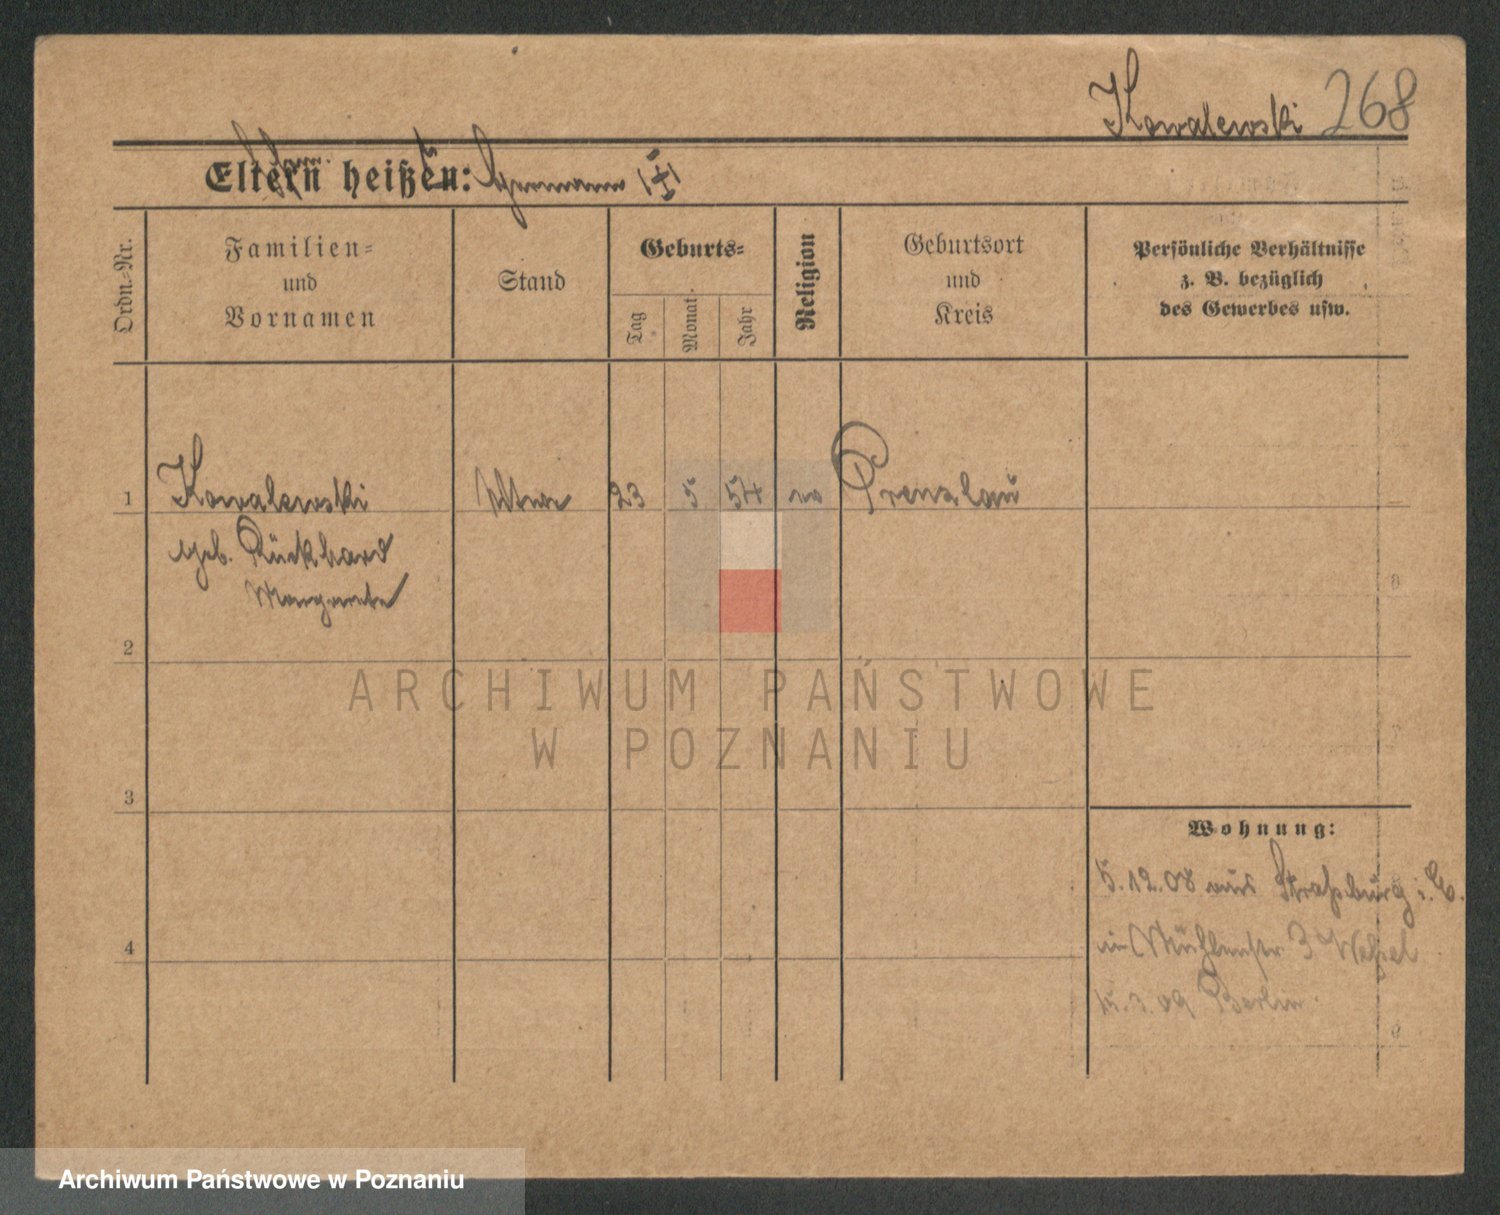 Kowalewski 268
Eltern heißen: Hermann
Ordn.-Nr.
Familien-
und
Vornamen
Stand
Geburts-
Tag
Monat
Jahr
Religion
Geburtsort
und
Kreis
Persönliche Verhältnisse
z. B. bezüglich
des Gewerbes usw.
1 Kowalewski Wtwe 23 5 54 ev Prenzlau
geb. Rückhard
Margarete
2
3
4
Wohnung:
5.12.08 aus Straßburg i. E.
in Mühlenstr 3
09 Berlin
ARCHIWUM PAŃSTWOWE
W POZNANIU
Archiwum Państwowe w Poznaniu